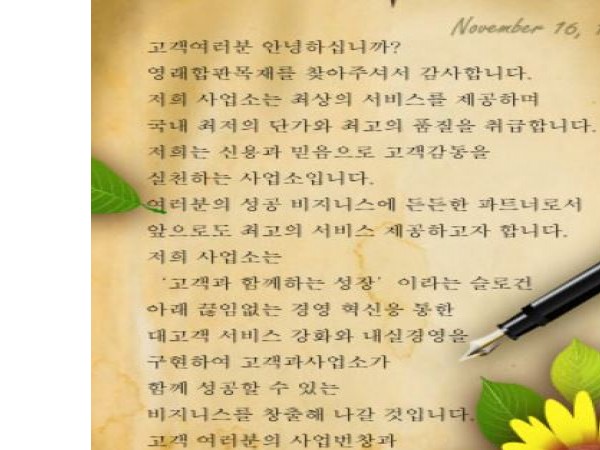 November 16, 1
고객여러분 안녕하십니까?
영래합판목재를 찾아주셔서 감사합니다.
저희 사업소는 최상의 서비스를 제공하며
국내 최저의 단가와 최고의 품질을 취급합니다.
저희는 신용과 믿음으로 고객감동을
실천하는 사업소입니다.
여러분의 성공 비지니스에 든든한 파트너로서
앞으로도 최고의 서비스 제공하고자 합니다.
저희 사업소는
‘고객과 함께하는 성장’ 이라는 슬로건
아래 끊임없는 경영 혁신응 통한
대고객 서비스 강화와 내실경영을
구현하여 고객과사업소가
함께 성공할 수 있는
비지니스를 창출해 나갈 것입니다.
고객 여러분의 사업번창과